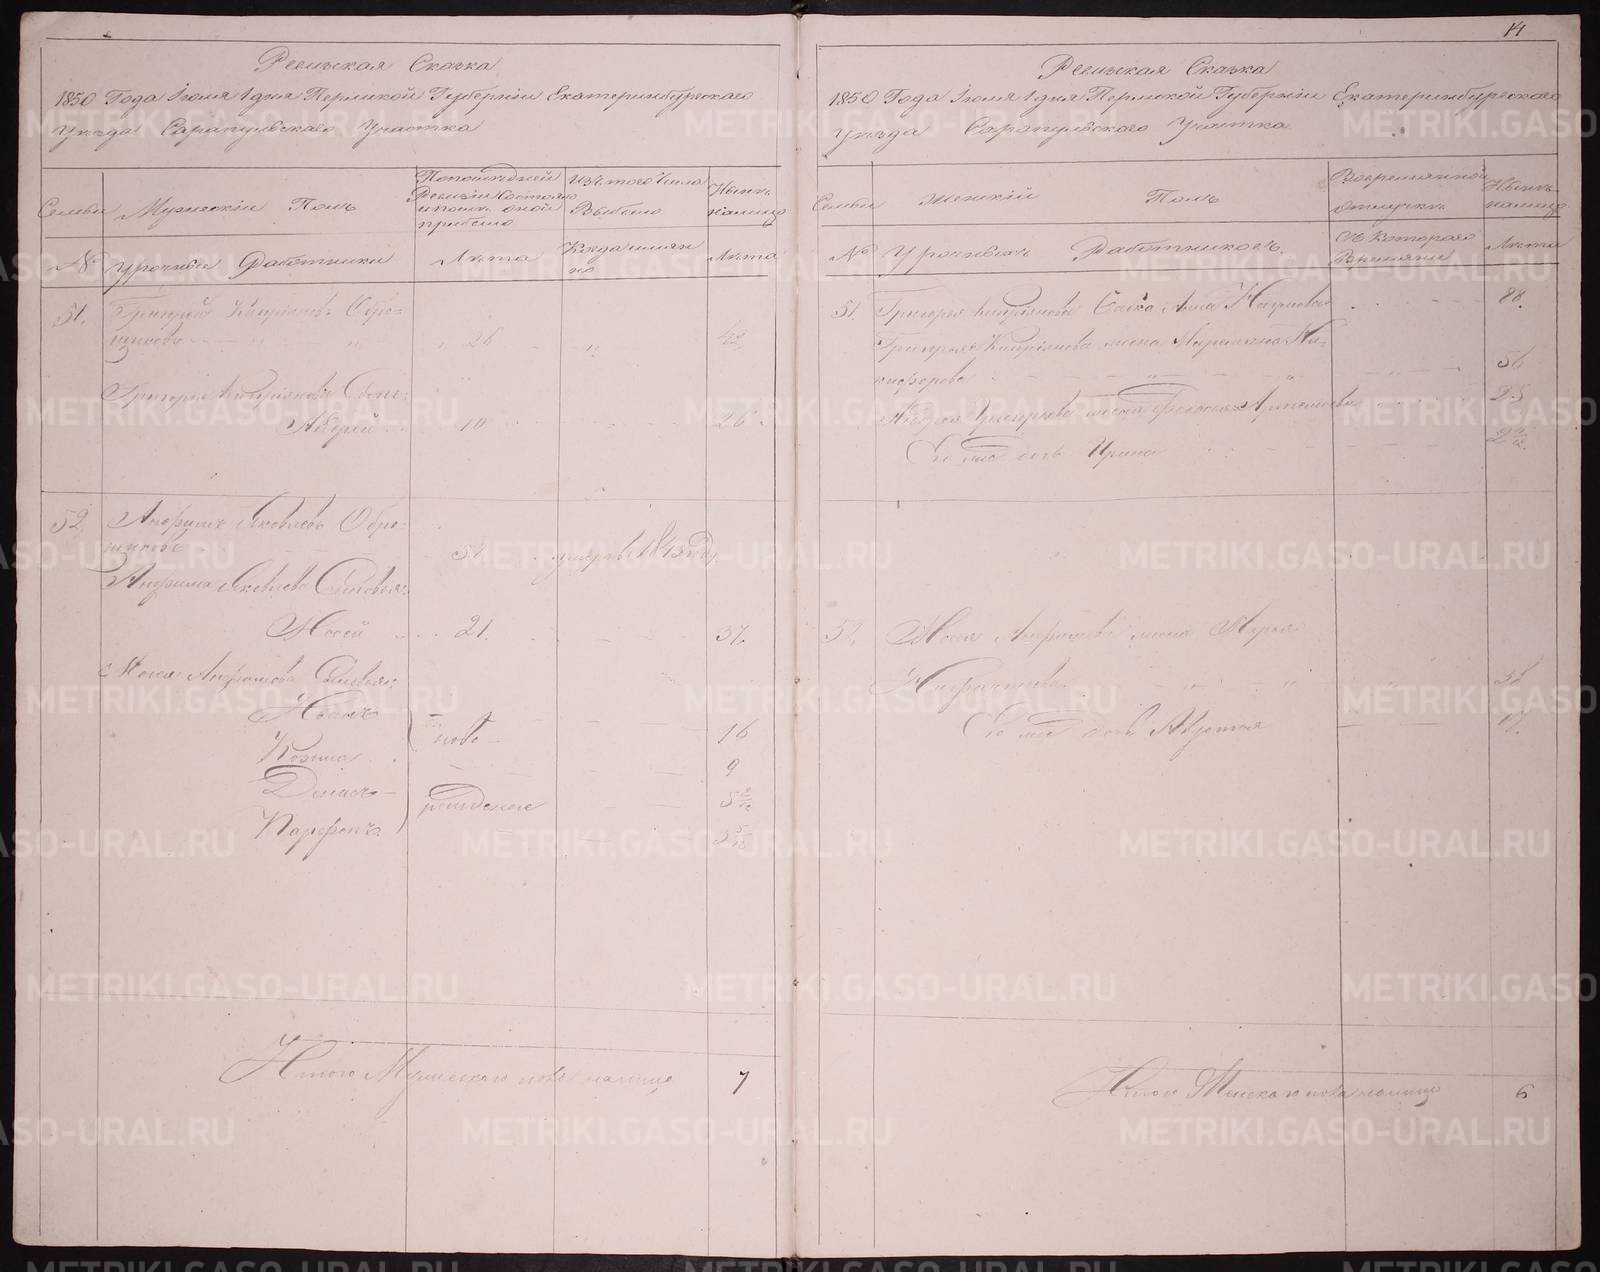 14
Ревизская Сказка
1850 Года Iюля 1 дня Пермской Губернiи Екатеринбургскаго
Уѣзда Сарапульскаго Участка
Семьи
Мужескiй Полъ
По последней
Ревизiи состояло
и послѣ оной
прибыло
Изъ того числа
Выбыло
Нынѣ
на лицо
№
Урочные Работники
Лѣта
Когда именно
Лѣта
51.
Григорiй Кипрiяновъ Обро-
щиковъ
26
42
Григорья Кипрiянова Сынъ:
Андрей
10
26
52.
Анфимъ Яковлевъ Обро-
щиковъ
52
умеръ въ 1845 году
Анфима Яковлева Сыновья:
Мосей
21.
37.
Мосея Анфимова Сыновья:
Иванъ
ново-
16
Козьма
9
Денисъ
рожденные
5
Парфенъ
3
Итого Мужескаго пола на лицо
7
Ревизская Сказка
1850 Года Iюля 1 дня Пермской Губернiи Екатеринбургскаго
Уѣзда Сарапульскаго Участка
Семьи
Женскiй Полъ
Во временной
отлучкѣ
Нынѣ
на лицо
№
Урочныхъ Работниковъ
Съ котораго
Времяни
Лѣта
51.
Григорья Кипрiянова Анна
88.
Григорья Кипрiянова жена Ни-
кифорова
56
Андрея Григорьева жена
25
Его же дочь Ирина
2
52.
Мосея Анфимова жена Марья
38
Его же дочь Авдотья
17.
Итого Женскаго пола на лицо
6
METRIKI.GASO-URAL.RU